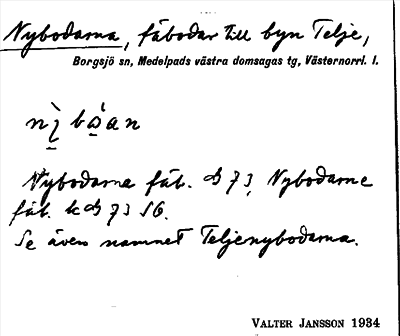 Nybodarna, fäbodar till byn Telje,
Borgsjö sn, Medelpads västra domsagas tg, Västernorrl. l.
Nybodarna fäb. 73, Nybodarne
fäb. 73 SG.
Se även namnet Teljenybodarna.
VALTER JANSSON 1934